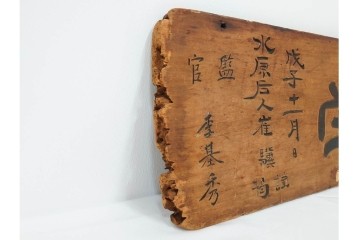 戊子十一月日
水原后人崔謹
監
官
李基秀